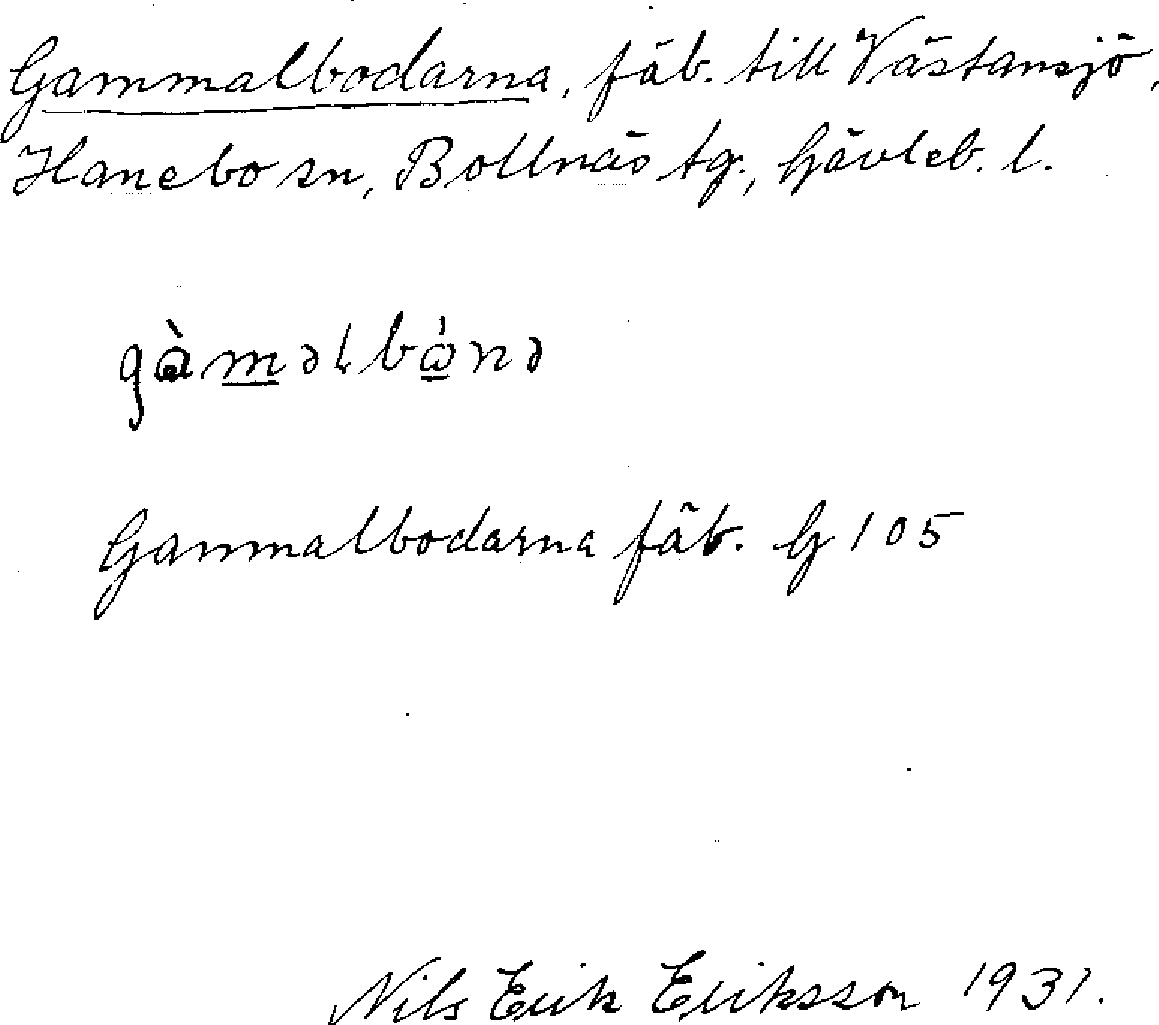 Gammalbodarna, fäb. till Västansjö,
Hanebo sn, Bollnäs tg., Gävleb. l.
gàməlbɷ̀nə
Gammalbodarna fäb. G 105
Nils Erik Eriksson 1931.